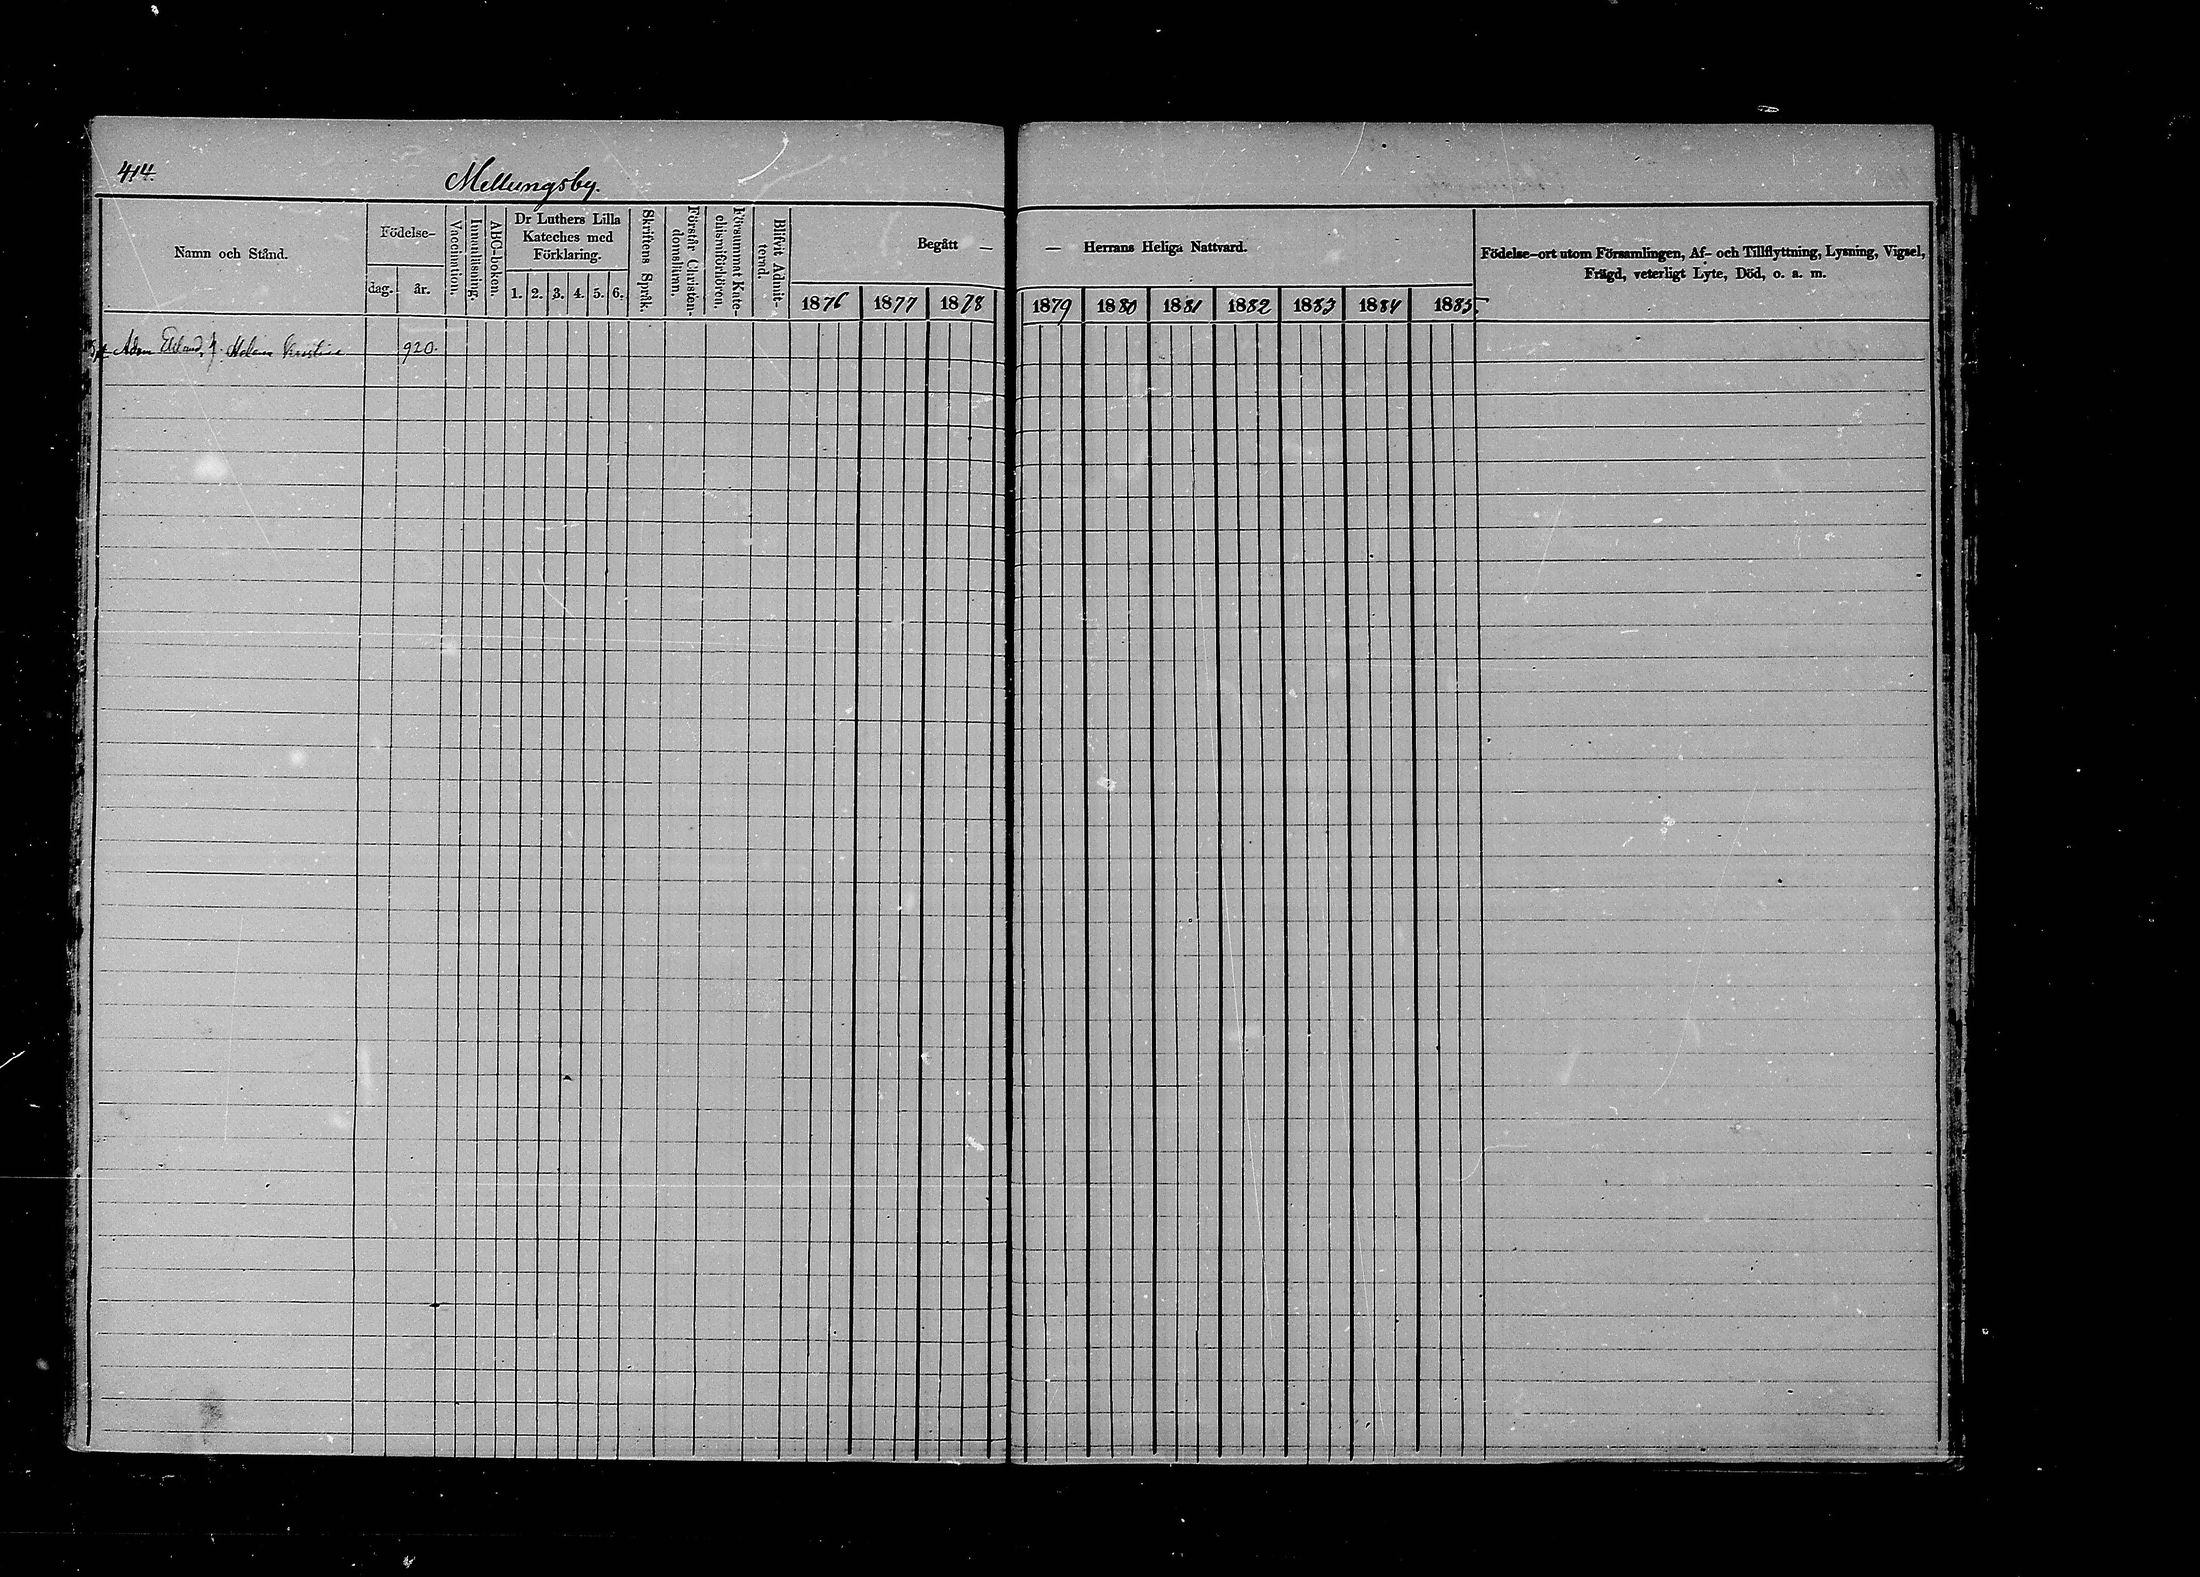 414.
Mellungsby.
Namn och Stånd.
Födelse-
dag.
år.
Vaccination.
Innanläsning.
ABC-boken.
Dr Luthers Lilla
Kateches med
Förklaring.
1. 2. 3. 4. 5. 6.
Skriftens Språk.
Förstår Christen-
domsläran.
Försummat Kate-
chismiförhören.
Blifvit Admit-
terad.
Begått —
1876 1877 1878
— Herrans Heliga Nattvard.
1879 1880 1881 1882 1883 1884 1885.
Födelse-ort utom Församlingen, Af- och Tillflyttning, Lysning, Vigsel,
Frägd, veterligt Lyte, Död, o. a. m.
Adam Helena Kristina 920.